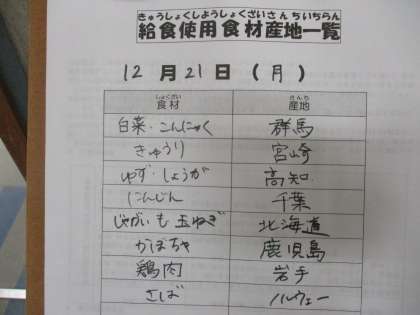 きゅうしょくしようしょくざいさんちいちらん
給食使用食材産地一覧
12月21日(月)
しょくざい さんち
食材 産地
白菜・こんにゃく 群馬
きゅうり 宮崎
ゆず・しょうが 高知
にんじん 千葉
じゃがいも 玉ねぎ 北海道
かぼちゃ 鹿児島
鶏肉 岩手
さば ノルウェー